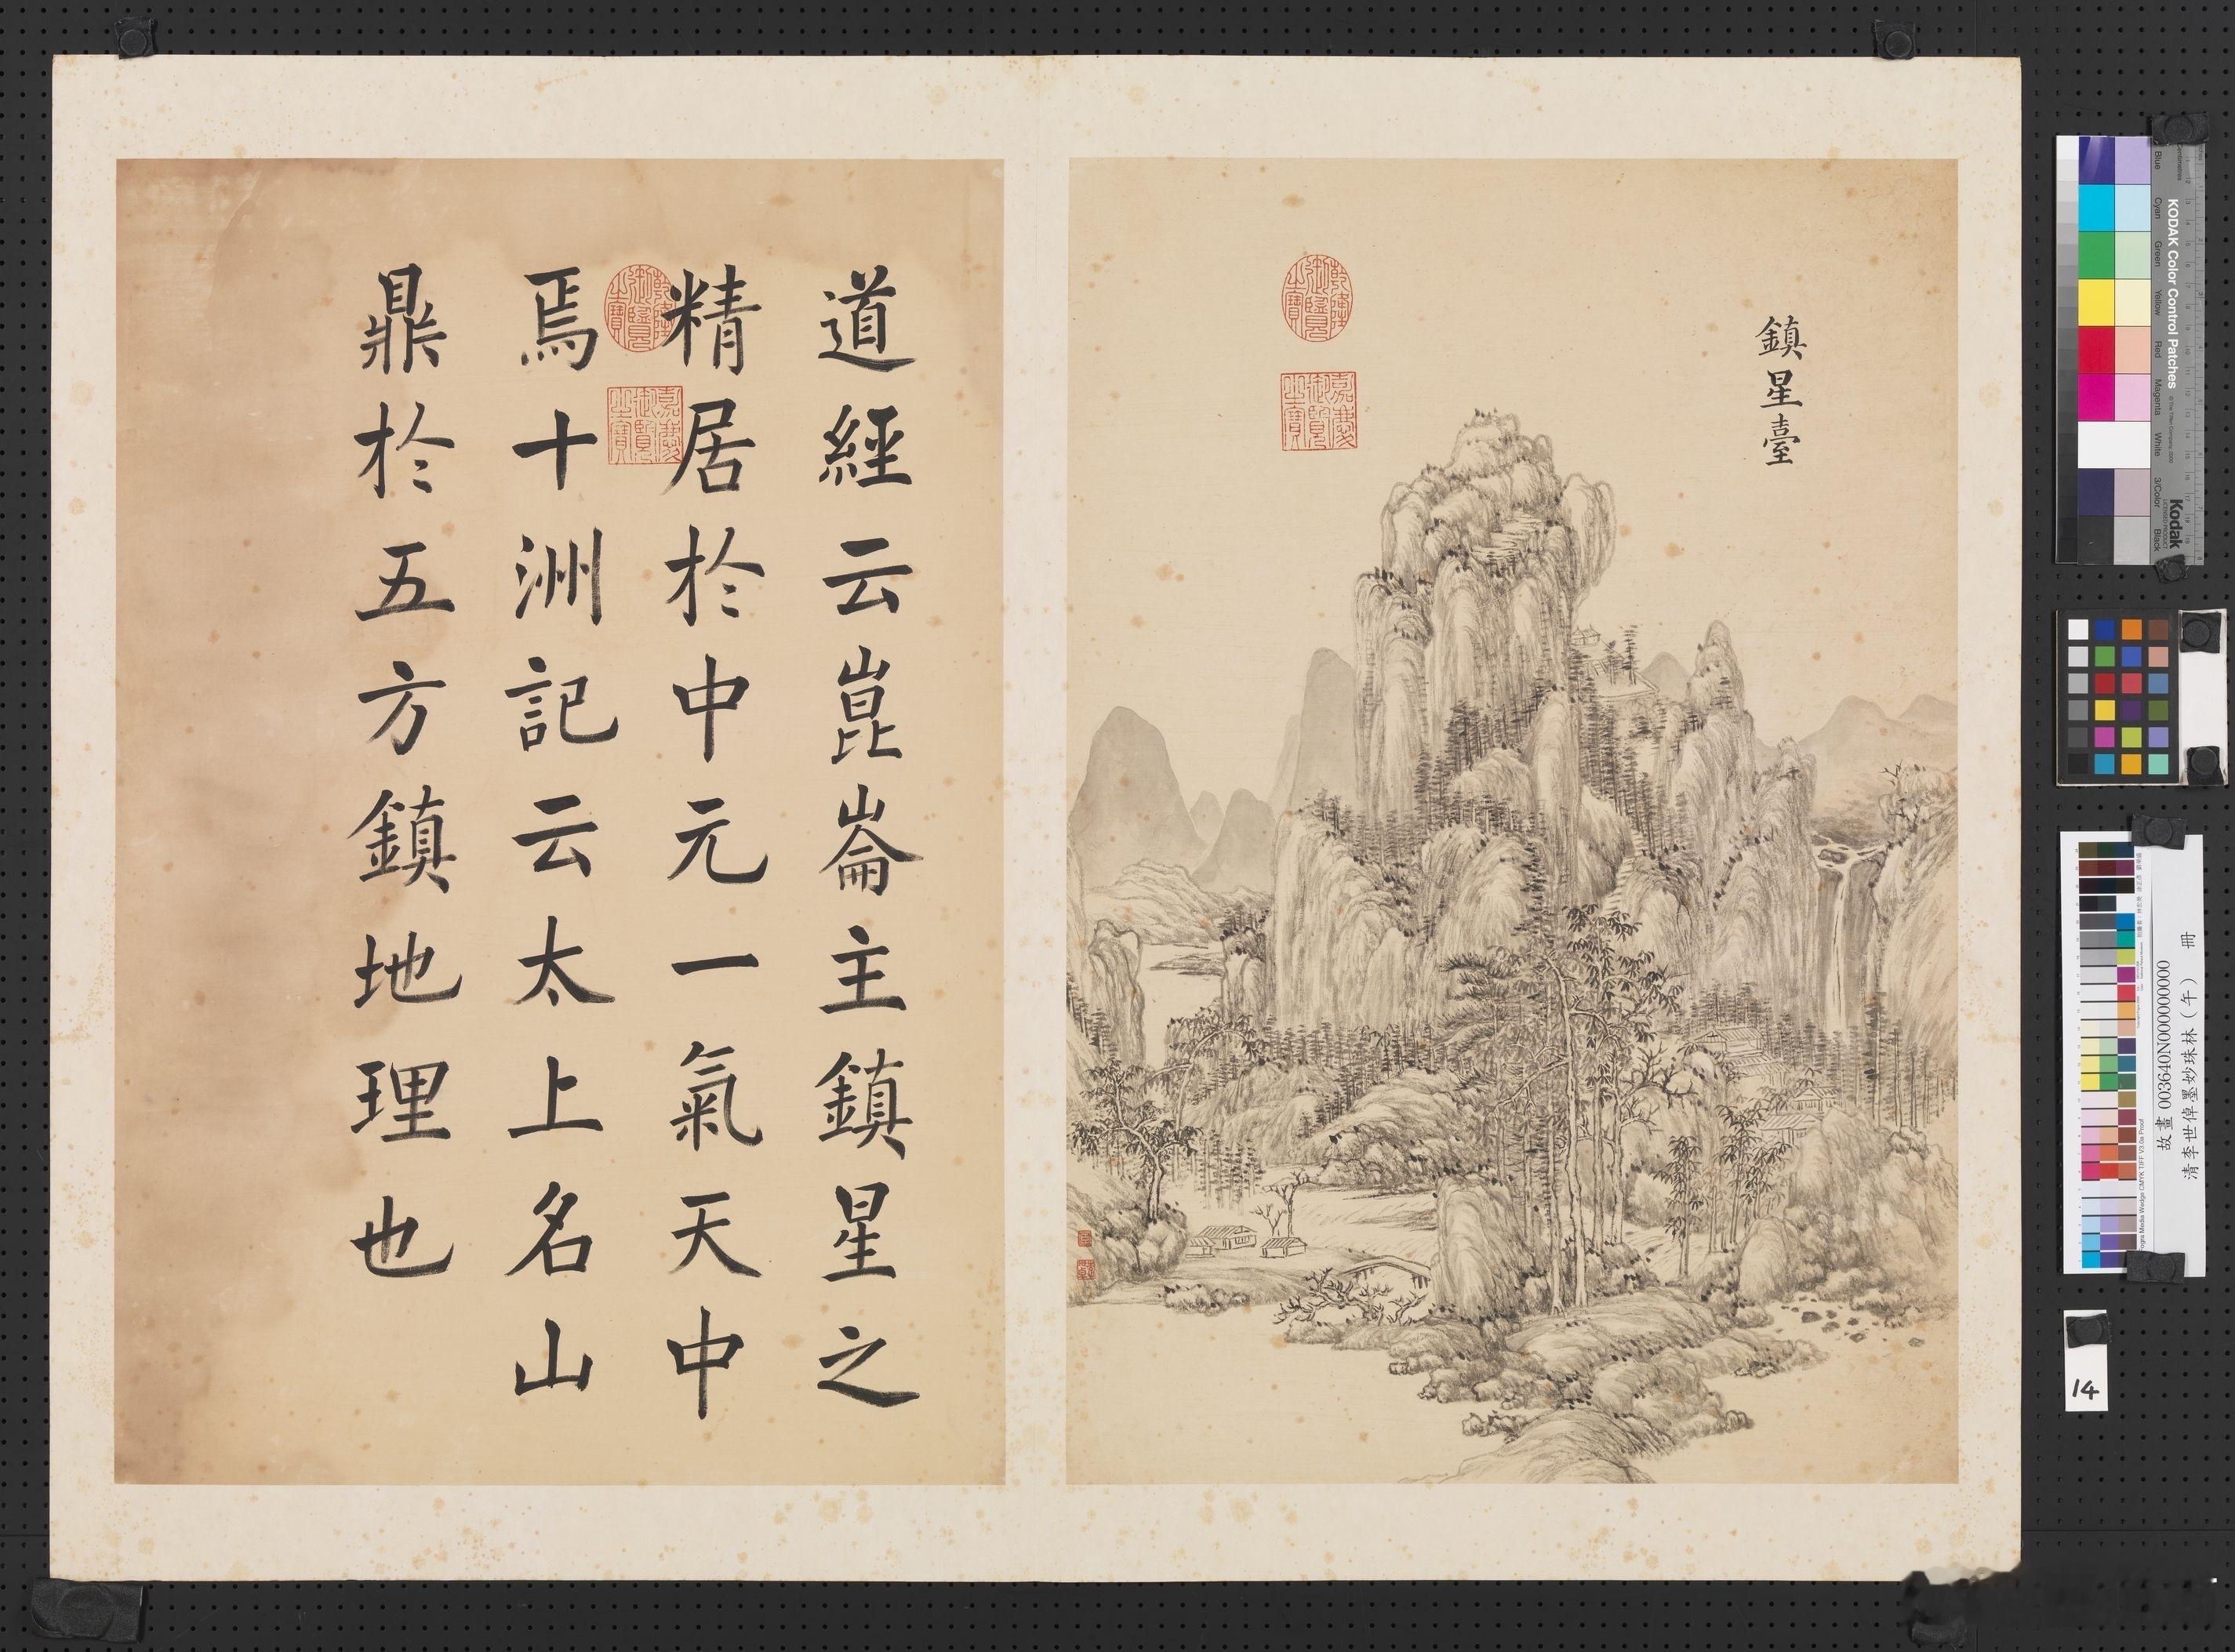 鎮星臺
乾隆御覽之寶
嘉慶御覽之寶
道經云崑崙主鎮星之
精居於中元一氣天中
焉十洲記云太上名山
鼎於五方鎮地理也
乾隆御覽之寶
嘉慶御覽之寶
KODAK Color Control Patches
Kodak
Blue
Cyan
Green
Yellow
Red
Magenta
White
3/Color
Black
故畫 003640N000000000
清李世倬墨妙珠林（午） 冊
14